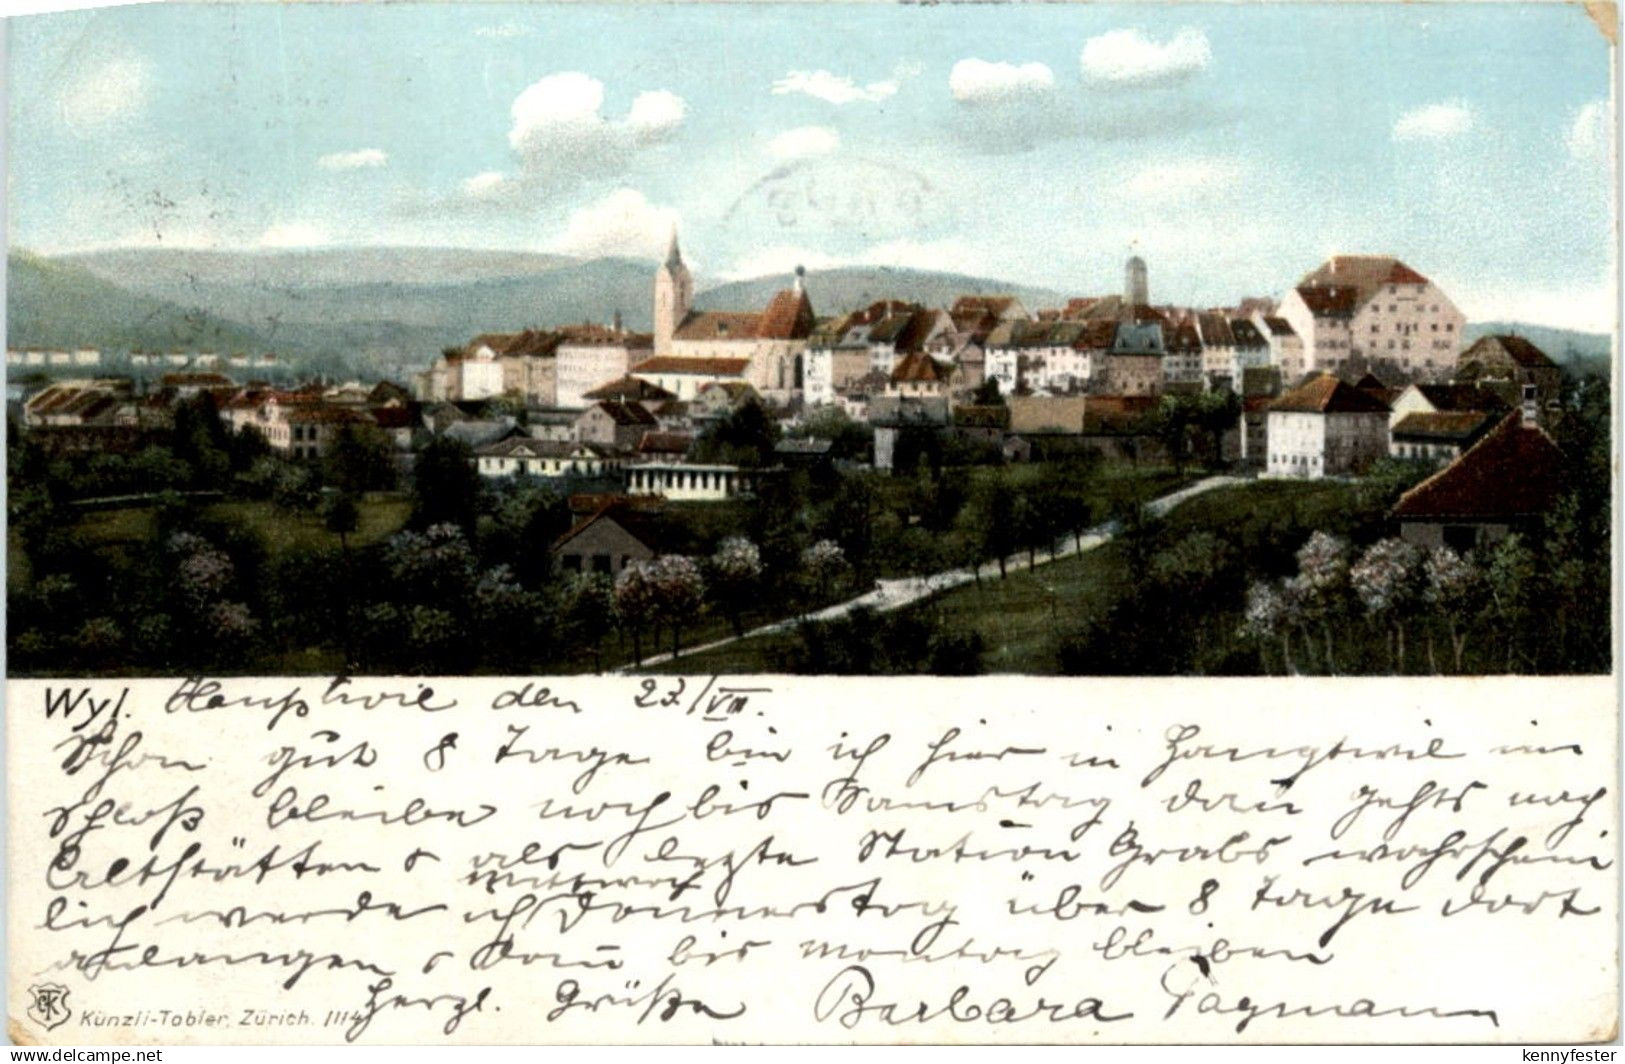 Wyl. Hauptwil den 23./VIII.
Schon gut 8 Tage bin ich hier in Hauptwil im
Schloß bleibe noch bis Samstag dan̄ gehts nach
Altstätten & als lezte Station Grabs wahrschein
lich werde ich Mittwoch Donnerstag über 8 Tage dort
anlangen & dan̄ bis Montag bleiben
Herzl. Grüße Barbara
Künzli-Tobler, Zürich. 1114
kennyfester